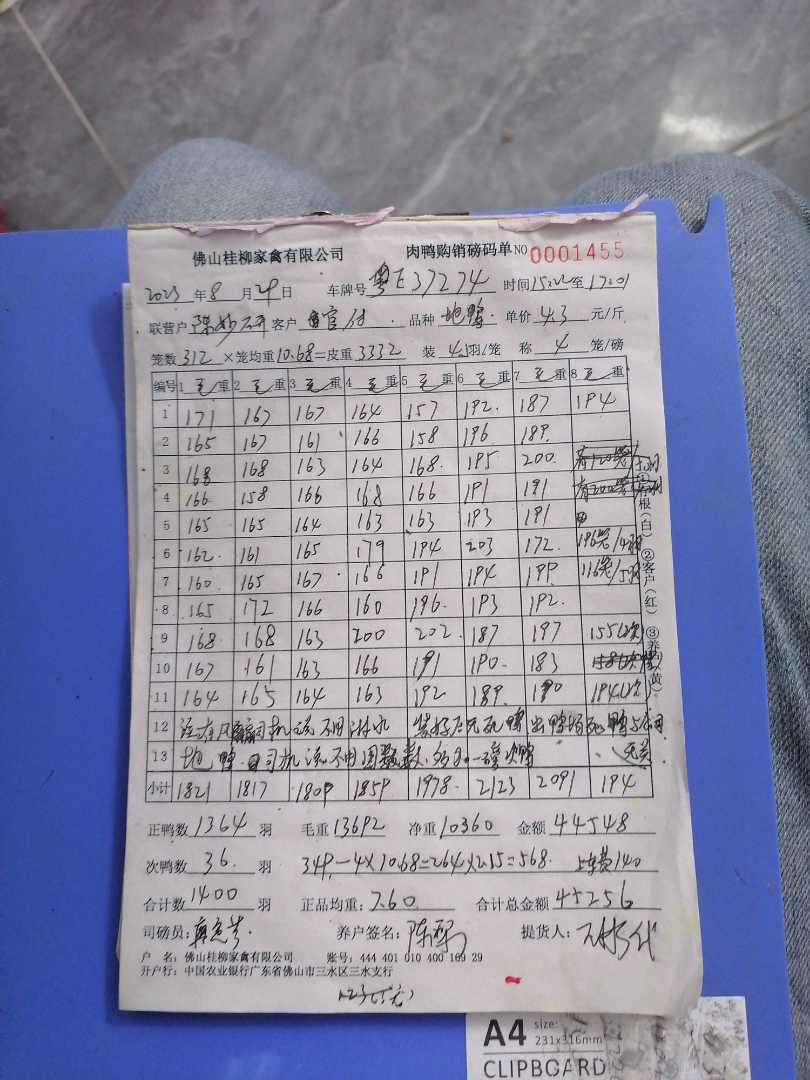 佛山桂柳家禽有限公司 肉鸭购销磅码单 NO 0001455
2023 年 8 月 29 日 车牌号 粤E37274 时间 15:22 至 17:01
联营户 陈妙研 客户 官付 品种 地鸭 单价 4.3 元/斤
笼数 312 ×笼均重 10.68 =皮重 3332 装 4.5 羽/笼 称 4 笼/磅
编号 1 毛重 2 毛重 3 毛重 4 毛重 5 毛重 6 毛重 7 毛重 8 毛重
1 171 167 167 164 157 192 187 194
2 165 167 161 166 158 196 189
3 168 168 163 164 168 195 200
4 166 158 166 168 166 191 191
5 165 165 164 163 163 193 191
6 162 161 165 179 194 203 172 196笼/4羽
7 160 165 167 166 191 194 199 116笼/5羽
8 165 172 166 160 196 193 192
9 168 168 163 200 202 187 197 155(次)
10 167 161 163 166 191 190 183
11 164 165 164 163 192 189 190 194(次)
12 司机说不用淋水 装好后无死鸭 出鸭场死鸭与公司
13 地鸭 司机说不用围 一磅次鸭 无关
小计 1821 1817 1809 1859 1978 2123 2091 194
正鸭数 1364 羽 毛重 13692 净重 10360 金额 44548
次鸭数 36 羽 349-4×10.68=264×2.15=568 上车费140
合计数 1400 羽 正品均重: 7.60 合计总金额 45256
司磅员: 养户签名: 陈 提货人:
户 名: 佛山桂柳家禽有限公司 账号: 444 401 010 400 169 29
开户行: 中国农业银行广东省佛山市三水区三水支行
①存根(白) ②客户(红) ③养户(黄)
A4 size: 231x316mm
CLIPBOARD